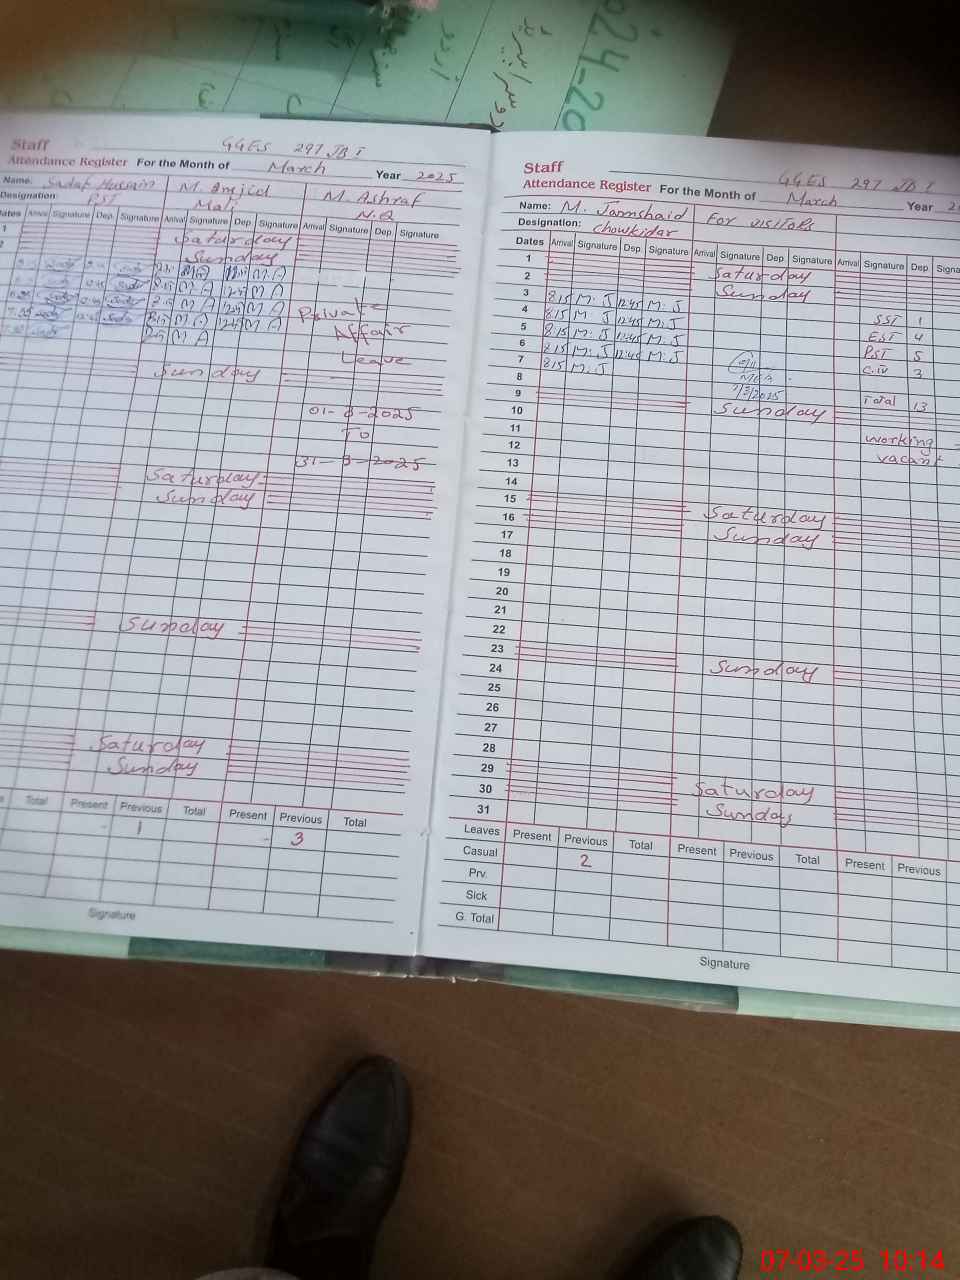 024-20
Staff
GGES 297 JB I
Attendance Register For the Month of March Year 2025
Name: Sadaf Hussain M. Amjid M. Ashraf
Designation: PST Mali N.Q
Dates Arrival Signature Dep. Signature Arrival Signature Dep Signature Arrival Signature Dep. Signature
1 Saturday
2 Sunday
8.15 M A 12.45 M A
8.15 M A 12.45 M A
8.15 M A 12.45 M A
8.15 M A 12.45 M A
8.15 M A
Private
Affair
Leave
Sunday
01-3-2025
To
31-3-2025
Saturday
Sunday
Sunday
Saturday
Sunday
Total Present Previous Total Present Previous Total
- 1 - 3
Signature
Staff
GGES 297 JB I
Attendance Register For the Month of March Year
Name: M. Jamshaid For visitors
Designation: Chowkidar
Dates Arrival Signature Dep. Signature Arrival Signature Dep Signature Arrival Signature Dep
1 Saturday
2 Sunday
3 8.15 M. J 12.45 M. J
4 8.15 M. J 12.45 M. J SST 1
5 8.15 M. J 12.45 M. J EST 4
6 8.15 M. J 12.45 M. J PST 5
7 8.15 M. J C.IV 3
8 7/3/2025 Total 13
9 Sunday
10
11 working
12 vacant
13
14
15 Saturday
16 Sunday
17
18
19
20
21
22
23 Sunday
24
25
26
27
28
29 Saturday
30 Sunday
31
Leaves Present Previous Total Present Previous Total Present Previous
Casual 2
Prv.
Sick
G. Total
Signature
07-03-25 10:14